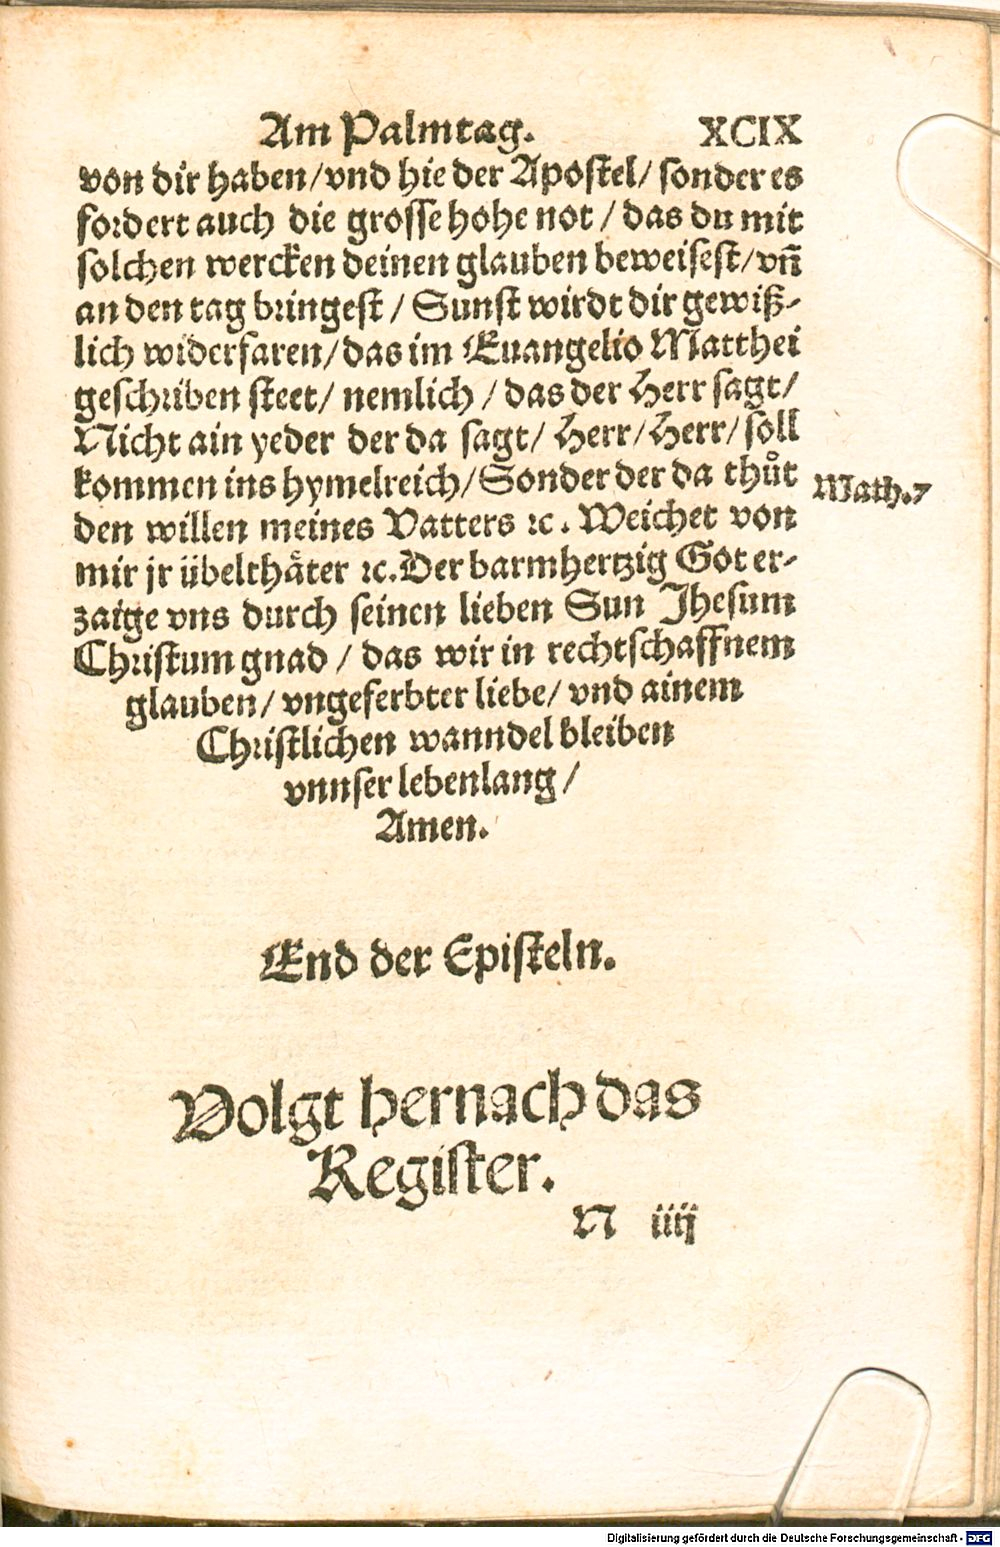 Am Palmtag. XCIX
von dir haben/vnd hie der Apostel/ sonder es
fordert auch die grosse hohe not / das du mit
solchen wercken deinen glauben beweisest/vñ
an den tag bringest / Sunst wirdt dir gewiß-
lich widerfaren/das im Euangelio Matthei
geschriben steet/ nemlich / das der Herr sagt/
Nicht ain yeder der da sagt/ Herr/Herr/ soll
kommen ins hymelreich/Sonder der da thůt
Math.7
den willen meines Vatters ꝛc. Weichet von
mir jr übelthäter ꝛc. Der barmhertzig Got er-
zaige vns durch seinen lieben Sun Jhesum
Christum gnad / das wir in rechtschaffnem
glauben/ vngeferbter liebe/ vnd ainem
Christlichen wanndel bleiben
vnnser lebenlang /
Amen.
End der Episteln.
Volgt hernach das
Register.
N iiij
Digitalisierung gefördert durch die Deutsche Forschungsgemeinschaft - DFG